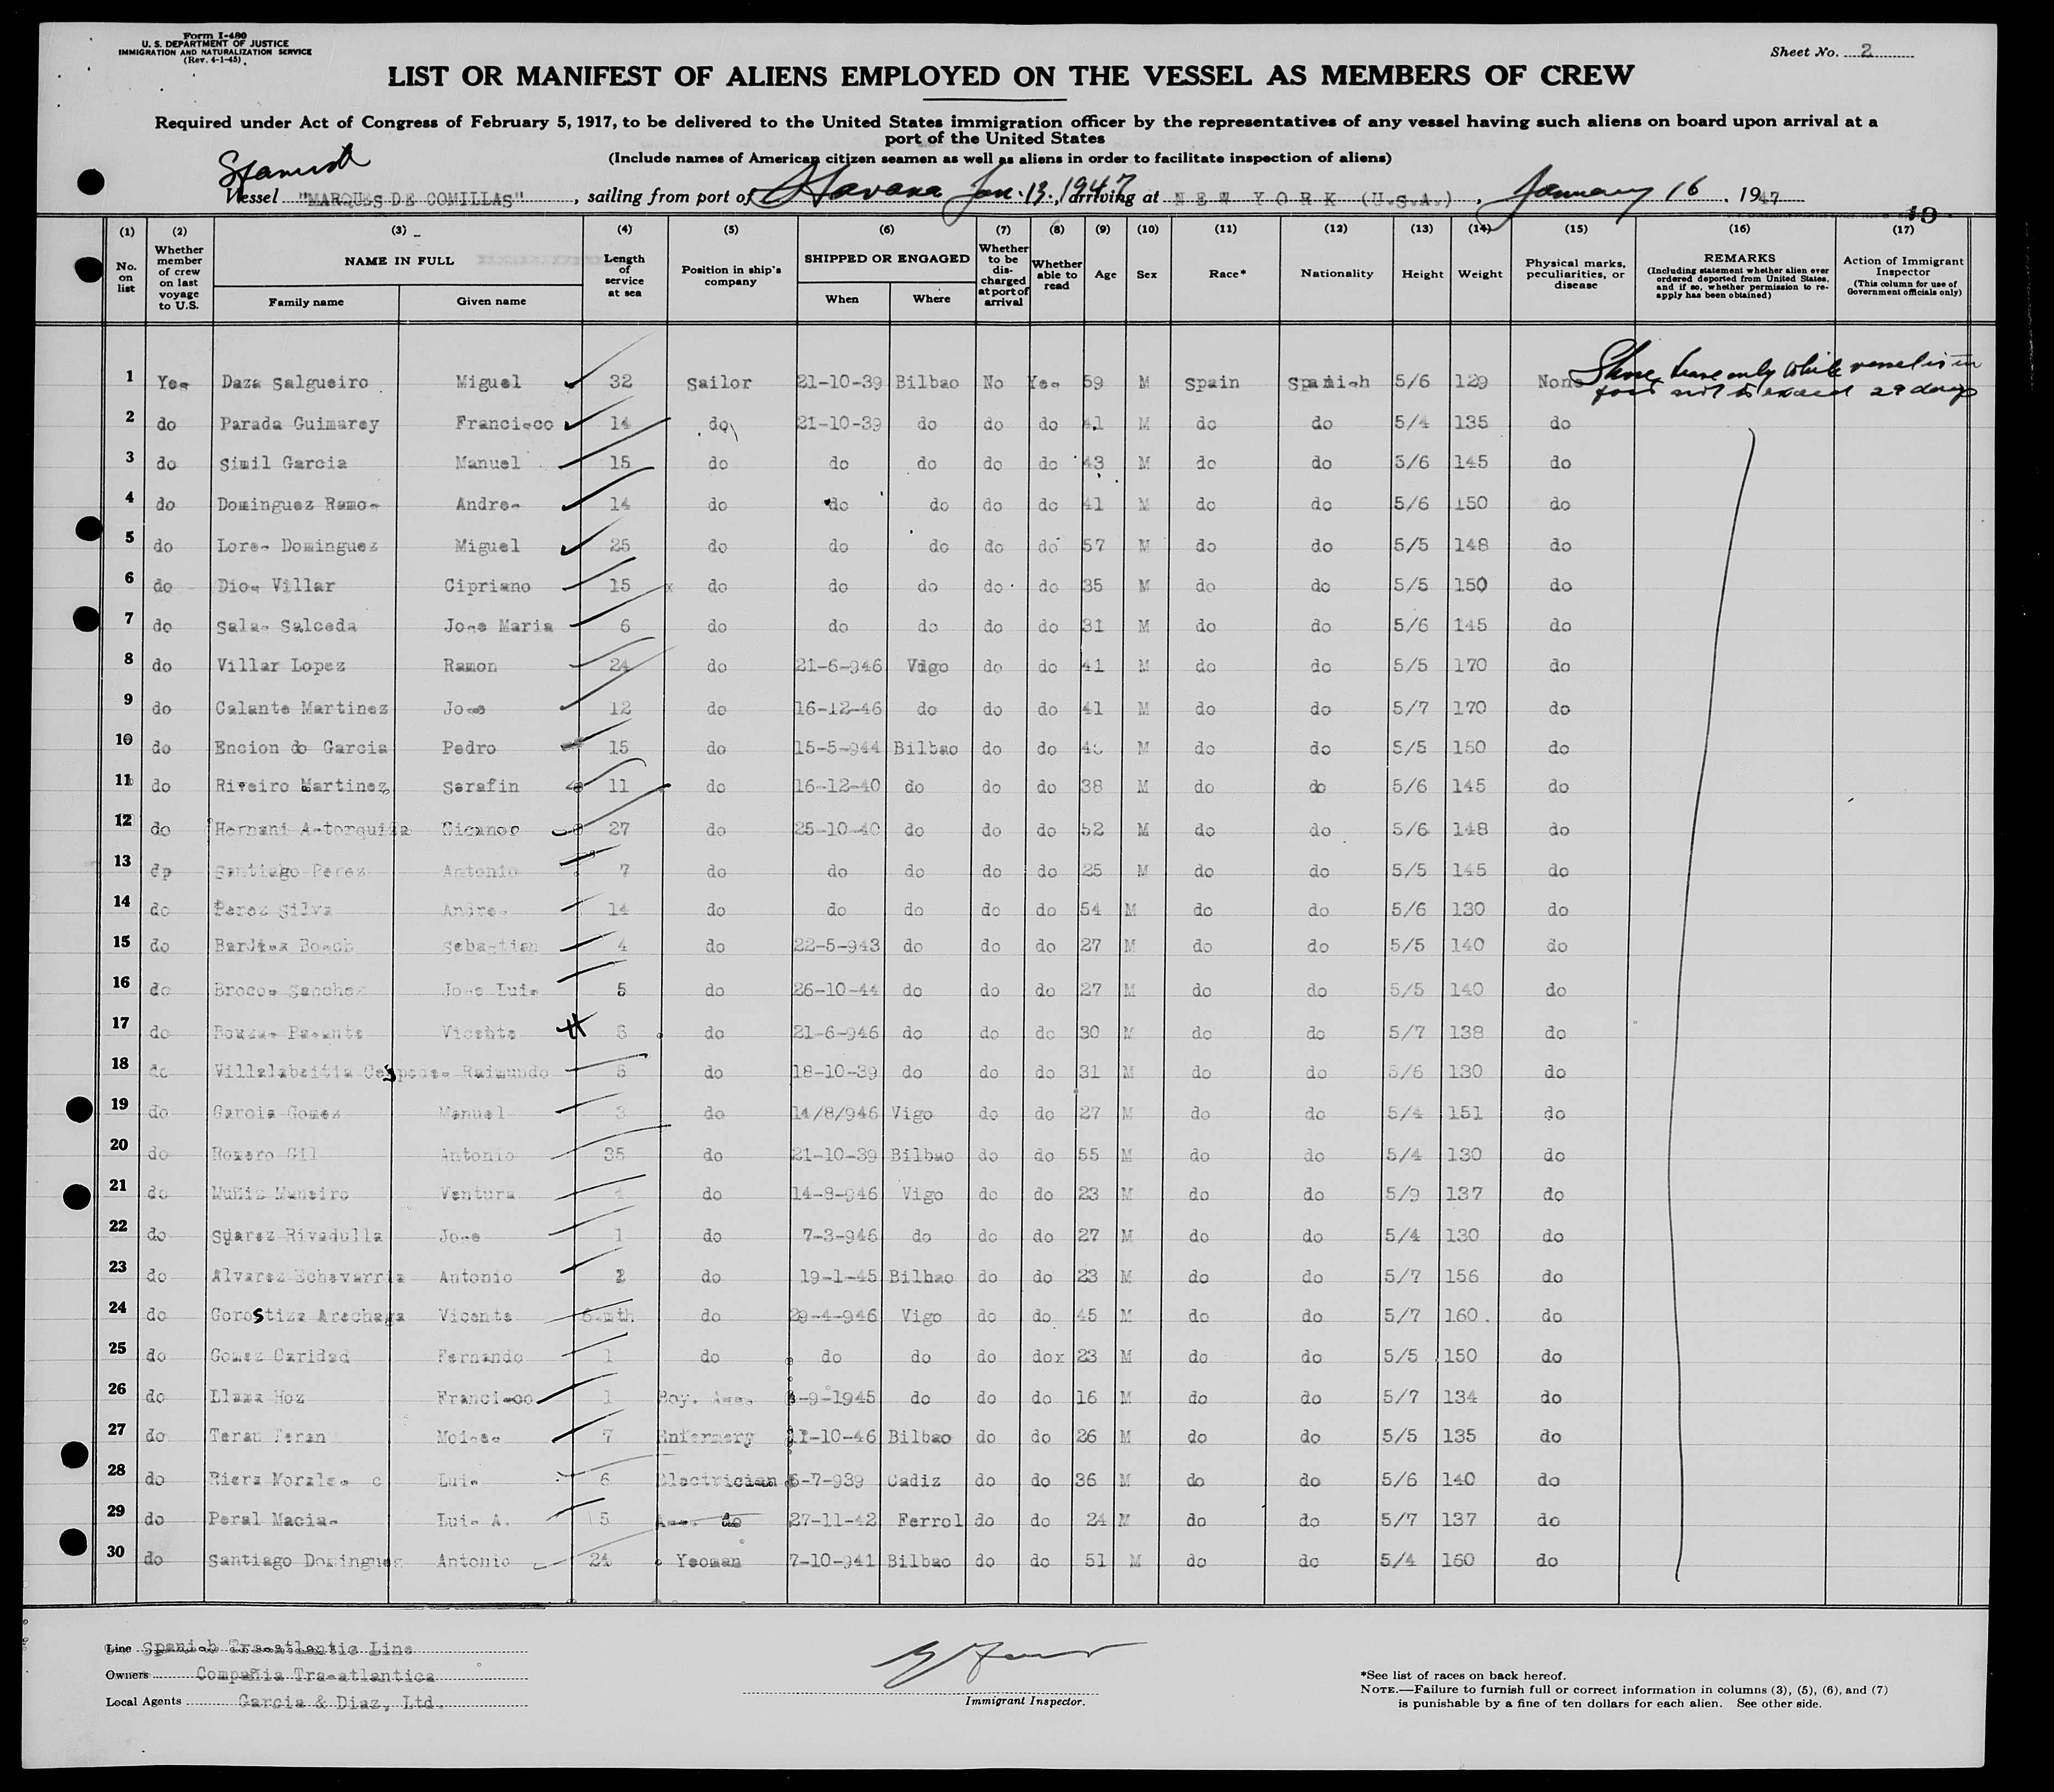 Form I-480
U. S. DEPARTMENT OF JUSTICE
IMMIGRATION AND NATURALIZATION SERVICE
(Rev. 4-1-45)
Sheet No. 2
LIST OR MANIFEST OF ALIENS EMPLOYED ON THE VESSEL AS MEMBERS OF CREW
Required under Act of Congress of February 5, 1917, to be delivered to the United States immigration officer by the representatives of any vessel having such aliens on board upon arrival at a
port of the United States
(Include names of American citizen seamen as well as aliens in order to facilitate inspection of aliens)
Spanish
Vessel "MARQUES DE COMILLAS", sailing from port of Havana Jan. 13, 1947, arriving at NEW YORK (U.S.A.), January 16, 1947
(1) No. on list
(2) Whether member of crew on last voyage to U.S.
(3) NAME IN FULL Family name Given name
(4) Length of service at sea
(5) Position in ship's company
(6) SHIPPED OR ENGAGED When Where
(7) Whether to be discharged at port of arrival
(8) Whether able to read
(9) Age
(10) Sex
(11) Race*
(12) Nationality
(13) Height
(14) Weight
(15) Physical marks, peculiarities, or disease
(16) REMARKS (Including statement whether alien ever ordered deported from United States, and if so, whether permission to re-apply has been obtained)
(17) Action of Immigrant Inspector (This column for use of Government officials only)
Shore leave only while vessel is in
port not to exceed 29 days
1 Yes Daza Salgueiro Miguel 32 Sailor 21-10-39 Bilbao No Yes 59 M Spain Spanish 5/6 129 None
2 do Parada Guimarey Francisco 14 do 21-10-39 do do do 41 M do do 5/4 135 do
3 do Simil Garcia Manuel 15 do do do do do 43 M do do 5/6 145 do
4 do Dominguez Ramos Andres 14 do do do do do 41 M do do 5/6 150 do
5 do Lores Dominguez Miguel 25 do do do do do 57 M do do 5/5 148 do
6 do Dios Villar Cipriano 15 do do do do do 35 M do do 5/5 150 do
7 do Salas Salceda Jose Maria 6 do do do do do 31 M do do 5/6 145 do
8 do Villar Lopez Ramon 24 do 21-6-946 Vigo do do 41 M do do 5/5 170 do
9 do Calante Martinez Jose 12 do 16-12-46 do do do 41 M do do 5/7 170 do
10 do Encion do Garcia Pedro 15 do 15-5-944 Bilbao do do M do do 5/5 150 do
11 do Riveiro Martinez Serafin 11 do 16-12-40 do do do 38 M do do 5/6 145 do
12 do Hernani Astorquiza Nicanor 27 do 25-10-40 do do do 52 M do do 5/6 148 do
13 dp Santiago Perez Antonio 7 do do do do do 25 M do do 5/5 145 do
14 do Perez Silva Andres 14 do do do do do 54 M do do 5/6 130 do
15 do Bardina Bosch Sebastian 4 do 22-5-943 do do do 27 M do do 5/5 140 do
16 do Brocos Sanchez Jose Luis 5 do 26-10-44 do do do 27 M do do 5/5 140 do
17 do Vicente do 21-6-946 do do do 30 M do do 5/7 138 do
18 do Villalabeitia Raimundo 5 do 18-10-39 do do do 31 M do do 5/6 130 do
19 do Garcia Gomez Manuel 3 do 14/8/946 Vigo do do 27 M do do 5/4 151 do
20 do Romero Gil Antonio 35 do 21-10-39 Bilbao do do 55 M do do 5/4 130 do
21 do Muñiz Maneiro Ventura 4 do 14-8-946 Vigo do do 23 M do do 5/9 137 do
22 do Suarez Rivadulla Jose 1 do 7-3-946 do do do 27 M do do 5/4 130 do
23 do Alvarez Echevarria Antonio 2 do 19-1-45 Bilbao do do 23 M do do 5/7 156 do
24 do Gorostiza Arechaga Vicente 6 mth do 29-4-946 Vigo do do 45 M do do 5/7 160 do
25 do Gomez Caridad Fernando 1 do do do do do x 23 M do do 5/5 150 do
26 do Llama Hoz Francisco 1 Boy. Ass. -9-1945 do do do 16 M do do 5/7 134 do
27 do Teran Teran Moises 7 Enfermery 11-10-46 Bilbao do do 26 M do do 5/5 135 do
28 do Riera Morales c Luis 6 Electrician 6-7-939 Cadiz do do 36 M do do 5/6 140 do
29 do Peral Macias Luis A. 5 Ass. do 27-11-42 Ferrol do do 24 M do do 5/7 137 do
30 do Santiago Dominguez Antonio 24 Yeoman 7-10-941 Bilbao do do 51 M do do 5/4 160 do
Line Spanish Trasatlantic Line
Owners Compañia Trasatlantica
Local Agents Garcia & Diaz, Ltd.
Immigrant Inspector.
*See list of races on back hereof.
NOTE.—Failure to furnish full or correct information in columns (3), (5), (6), and (7)
is punishable by a fine of ten dollars for each alien. See other side.